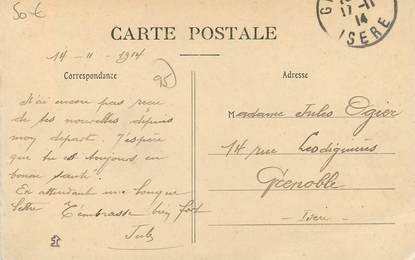 50 €
G
17-11
14
ISERE
CARTE POSTALE
14 - 11 - 1914
Correspondance
95
Adresse
N'ai encore pas reçu
de tes nouvelles depuis
mon départ. J'espère
que tu es toujours en
bonne santé.
En attendant une longue
lettre t'embrasse bien fort
Jules
Madame Jules Ogier
14 rue Lesdiguières
Grenoble
Isère